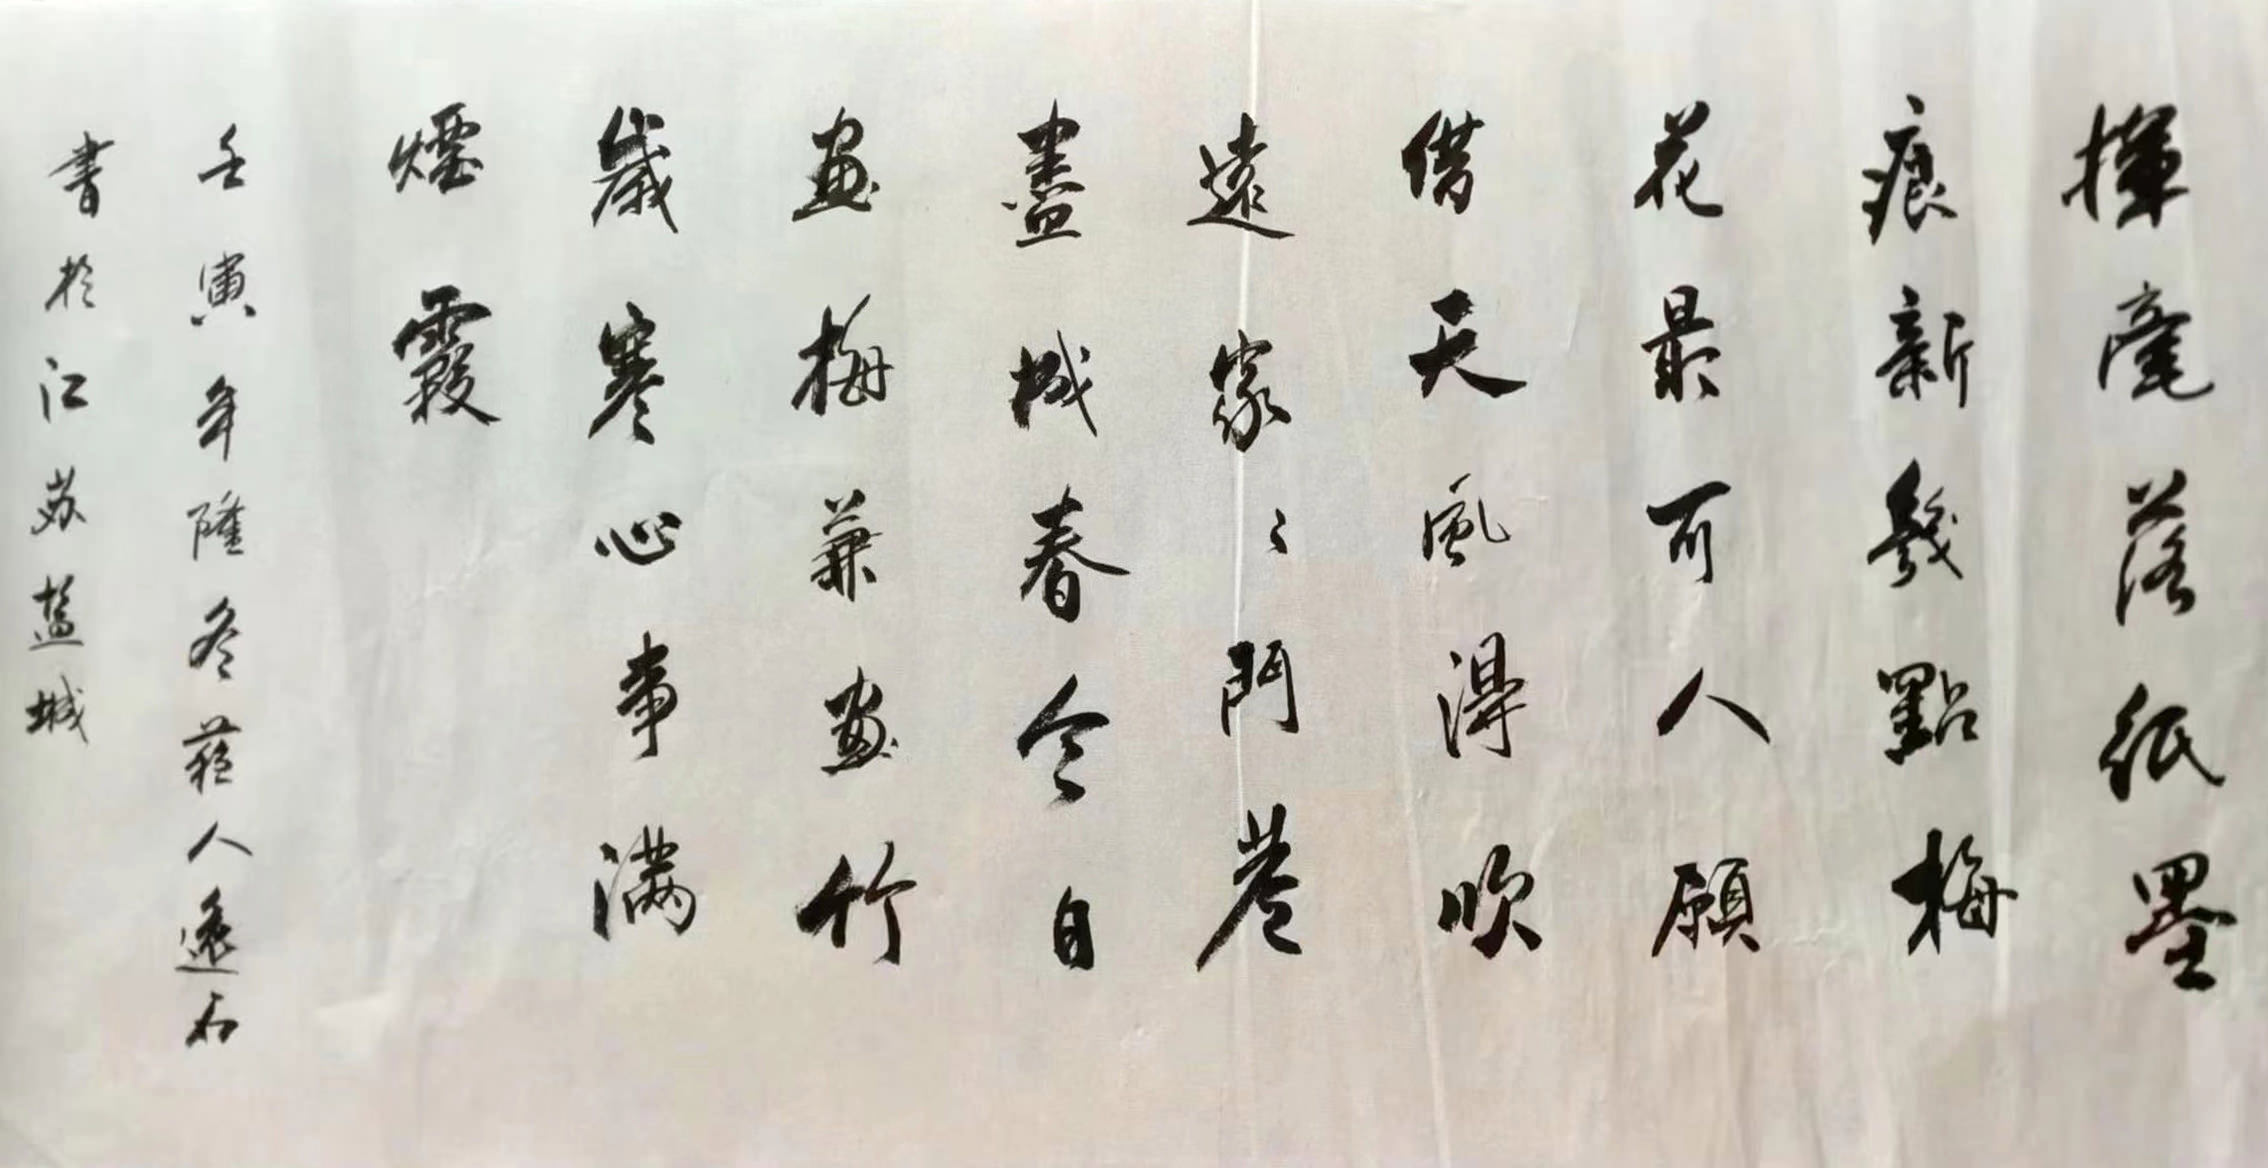 揮毫落紙墨
痕新幾點梅
花最可人願
借天風得吹
遠家〻門巷
盡城春今自
畫梅兼畫竹
歲寒心事滿
煙霞
壬寅年隆冬蘓人逸石
書於江苏盐城